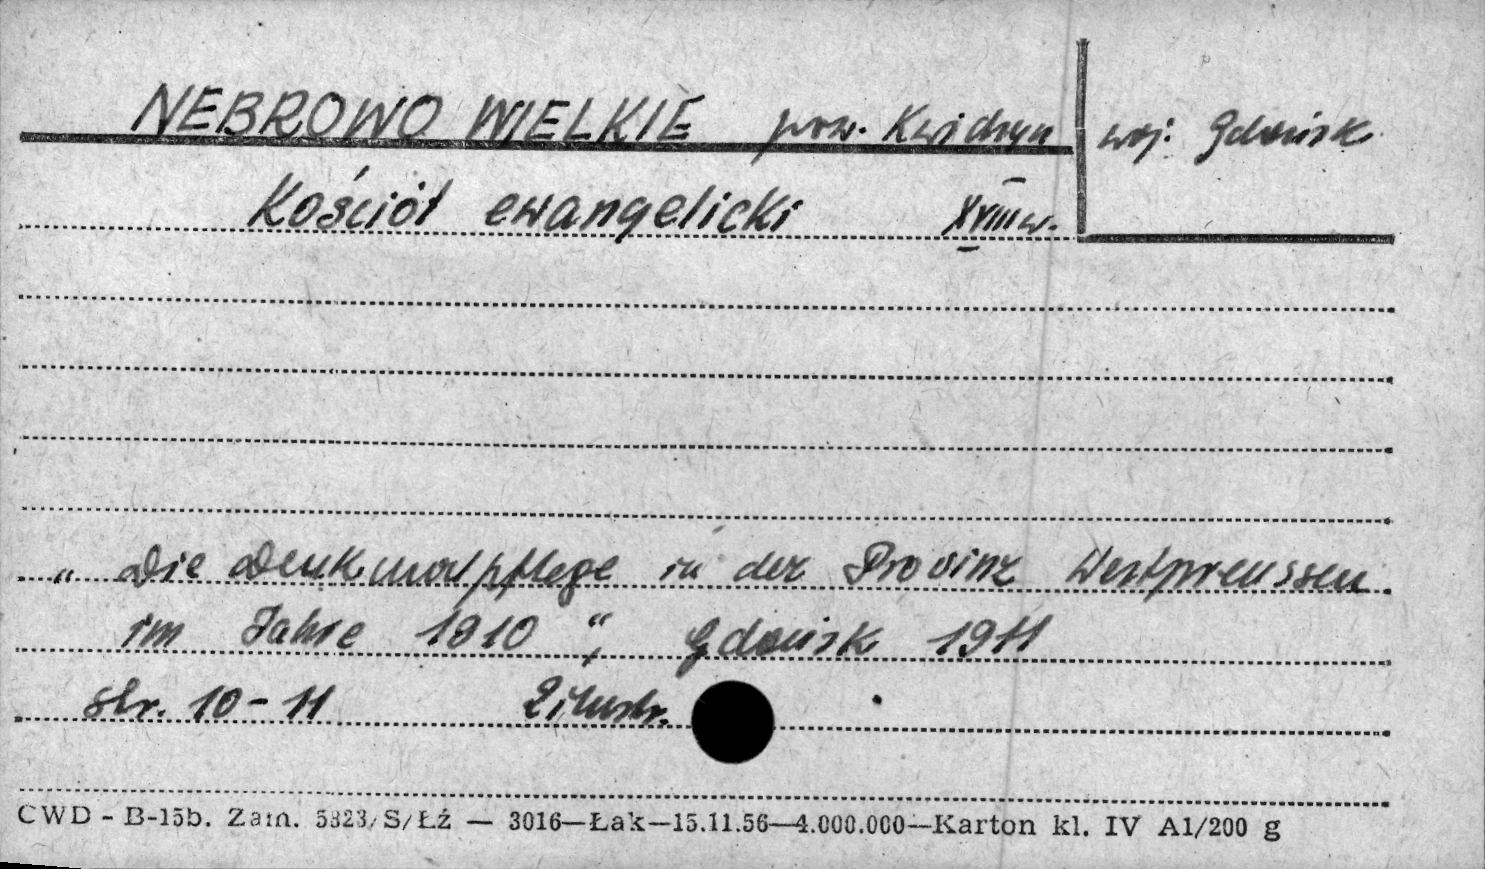 NEBROWO WIELKIE pow. Kwidzyn woj. Gdańsk
Kościół ewangelicki XVIII w.
„Die Denkmalpflege in der Provinz Westpreussen
im Jahre 1910", Gdańsk 1911
str. 10-11 2 illustr.
CWD - B-15b. Zam. 5823/S/Łź — 3016—Łak—15.11.56—4.000.000—Karton kl. IV A1/200 g